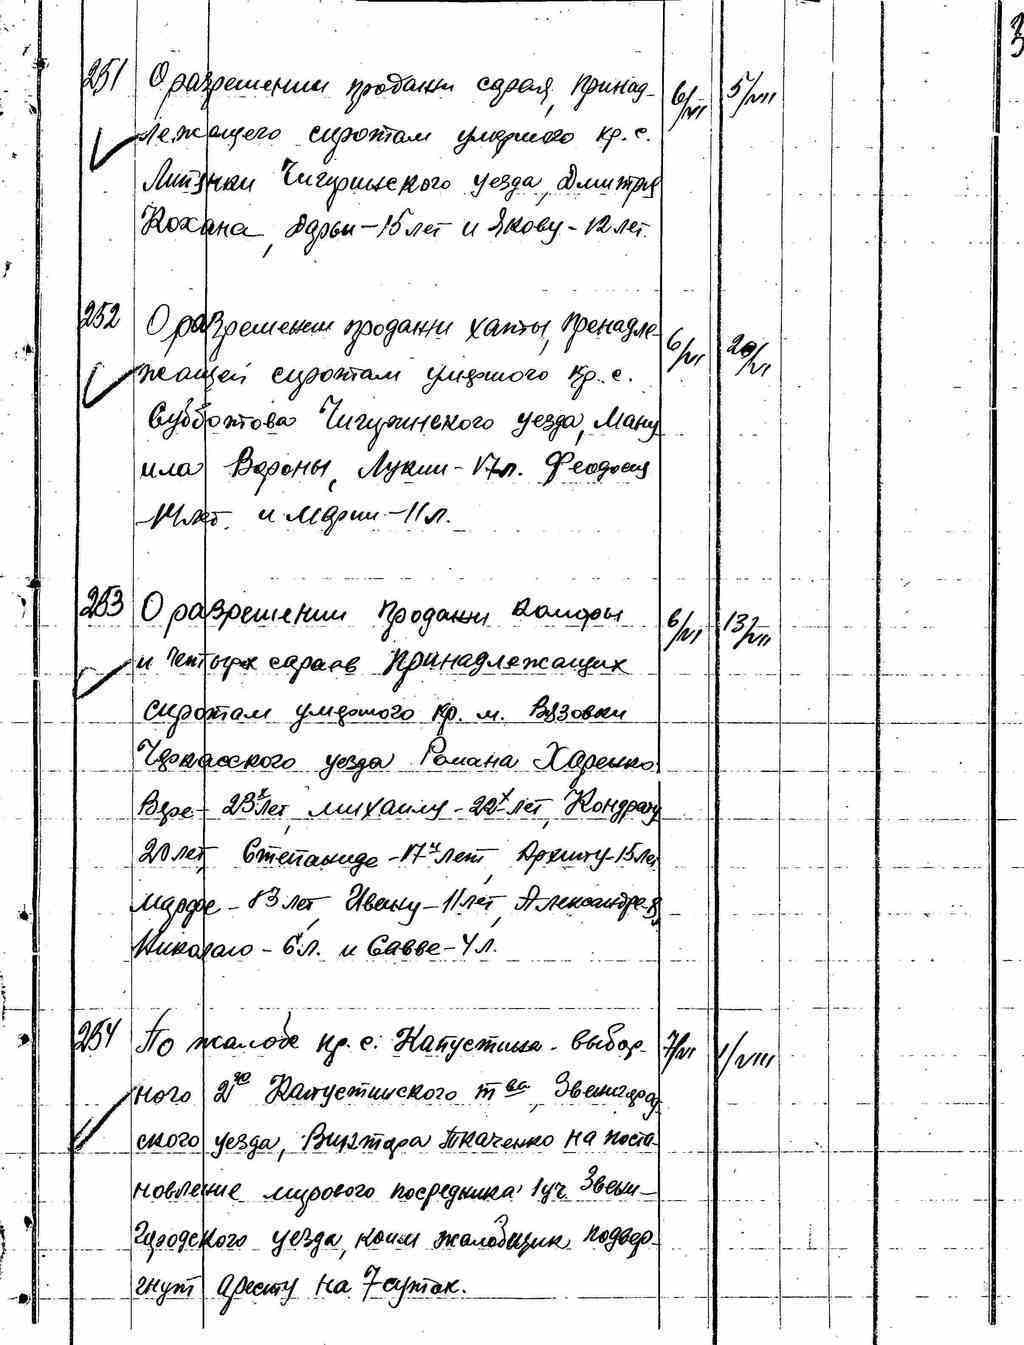 3
251 О разрешении продажи сарая, принад- 6/VI 5/VII
лежащего сиротам умершего кр. с.
Липянки Чигиринского уезда, Дмитрия
Кохана, Дарьи - 15 лет и Якову - 12 лет.
252 О разрешении продажи хаты, пренадле- 6/VI 20/VI
жащей сиротам умершего кр. с.
Субботова Чигиринского уезда, Ману
ила Вороны, Лукии - 17 л. Феодосия
14 лет. и Марии - 11 л.
253 О разрешении продажи коморы 6/VI 13/VII
и четырех сараев принадлежащих
сиротам умершого кр. м. Вязовки
Черкасского уезда Романа Харенко:
Вере - 23х лет, Михаилу - 22х лет, Кондрату
20 лет, Степаниде - 17и лет, Архипу - 15 лет
Марфе - 13 лет, Ивану - 11 лет, Александре 8,
Николаю - 6 л. и Савве - 4 л.
254 По жалобе кр. с. Капустина - выбор- 7/VI 1/VIII
ного 2го Капустинского т ва, Звенигород
ского уезда, Виктора Ткаченко на поста
новление мирового посредника 1 уч. Звени-
городского уезда, коим жалобщик подвер-
гнут аресту на 7 суток.